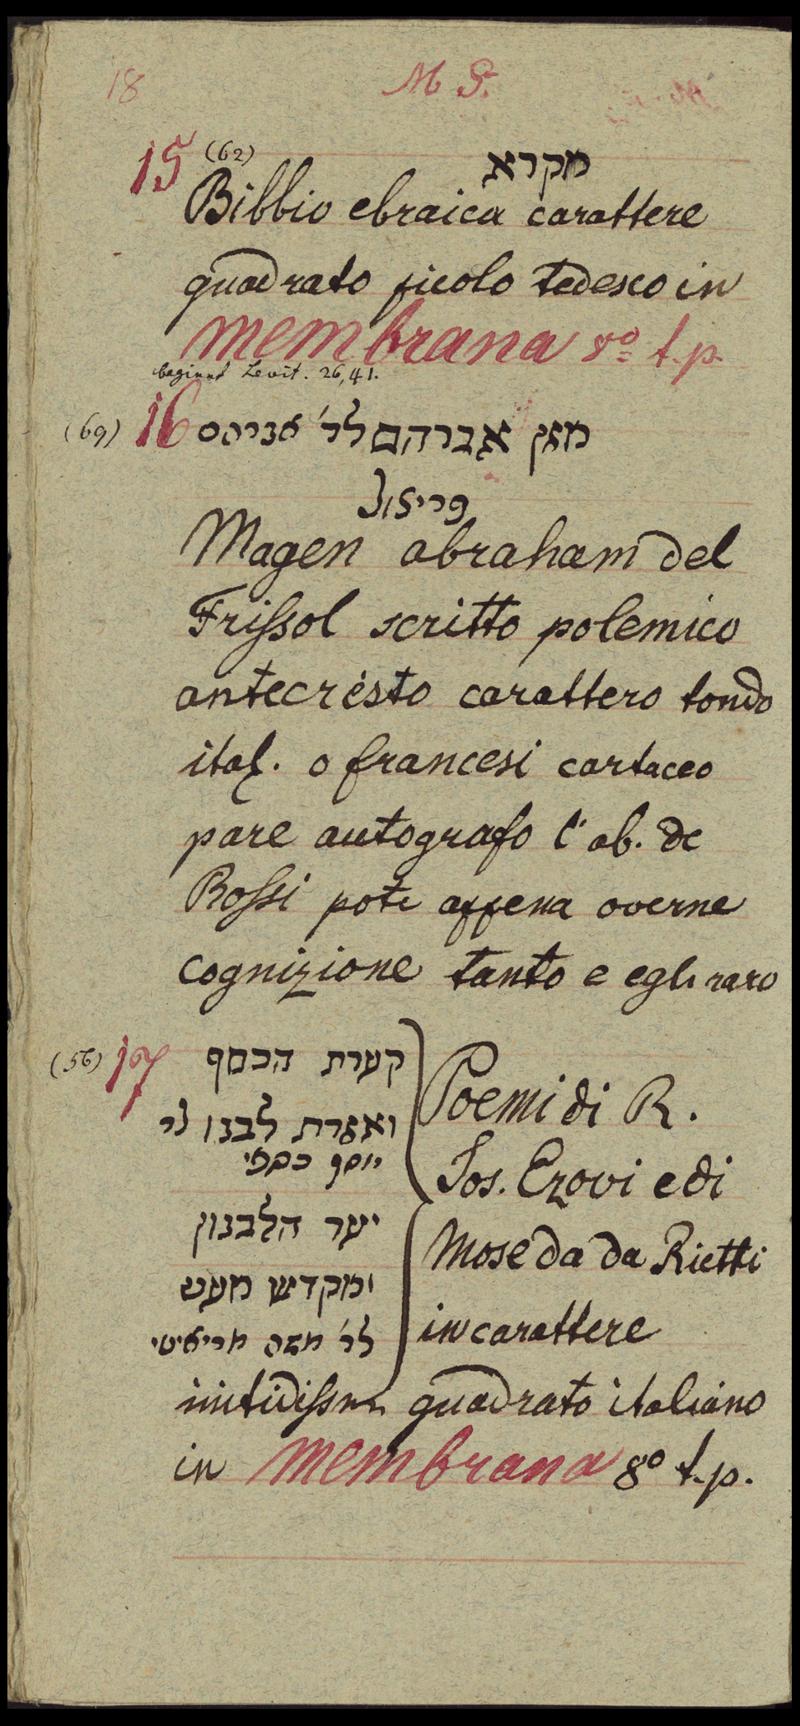 18 M S.
15 (62) מקרא
Bibbio ebraica carattere
quadrato picolo tedesco in
membrana 8º f. p.
beginnt Levit. 26, 41.
(69) 16 מגן אברהם לר׳ אברהם
פריצול
Magen abraham del
Frissol scritto polemico
antecristo carattero tondo
ital. o francesi cartaceo
pare autografo l' ab. de
Rossi pote appena overne
cognizione tanto e egli raro
(56) 17 קערת הכסף
ואגרת לבנו לר
יוסף כספי
Poemi di R.
Jos. Ezovi e di
יער הלבנון
ומקדש מעט
לר׳ משה מריאיטי
Mose da da Rietti
in carattere
nitidissm quadrato italiano
in membrana 8º f. p.